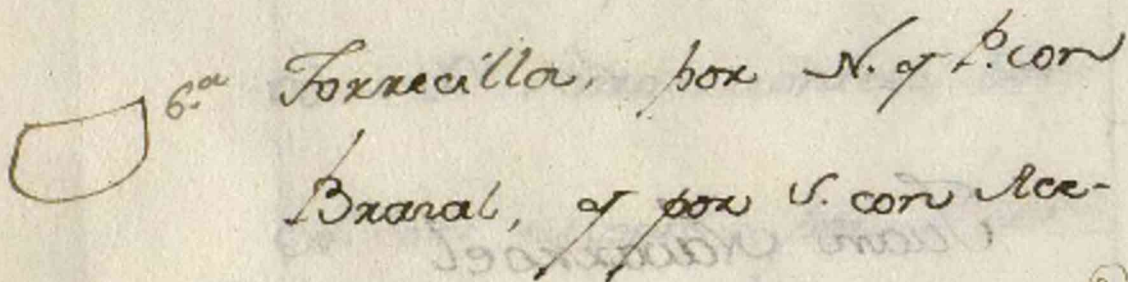 6.a Torrecilla, por N. y P. con
Brazal, y por S. con Ace-